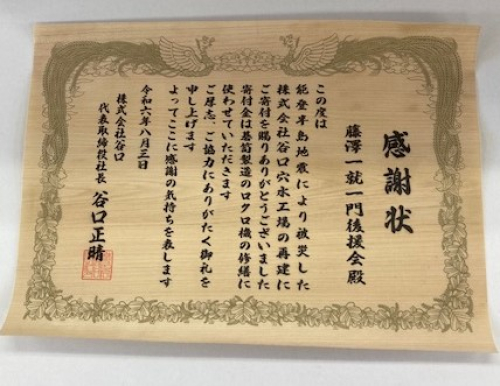 感謝状
藤澤一就一門後援会殿
この度は
能登半島地震により被災した
株式会社谷口穴水工場の再建に
ご寄付を賜りありがとうございました
寄付金は碁笥製造のロクロ機の修繕に
使わせていただきます
ご厚志、ご協力にありがたく御礼を
申し上げます
よってここに感謝の気持ちを表します
令和六年八月三日
株式会社谷口
代表取締役社長 谷口正晴